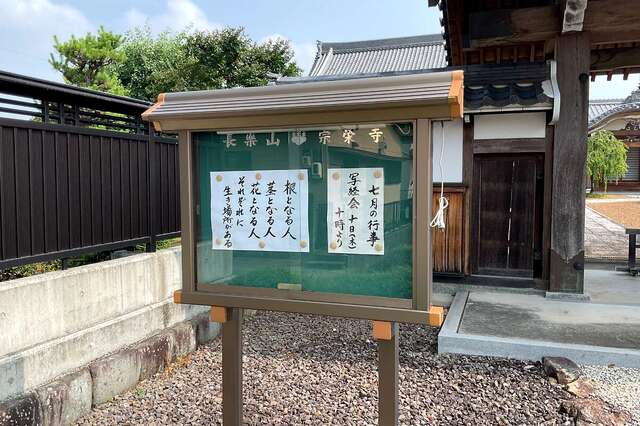 長楽山 宗栄寺
七月の行事
写経会 十日(木)
十時より
根となる人
茎となる人
花となる人
それぞれに
生き場所がある